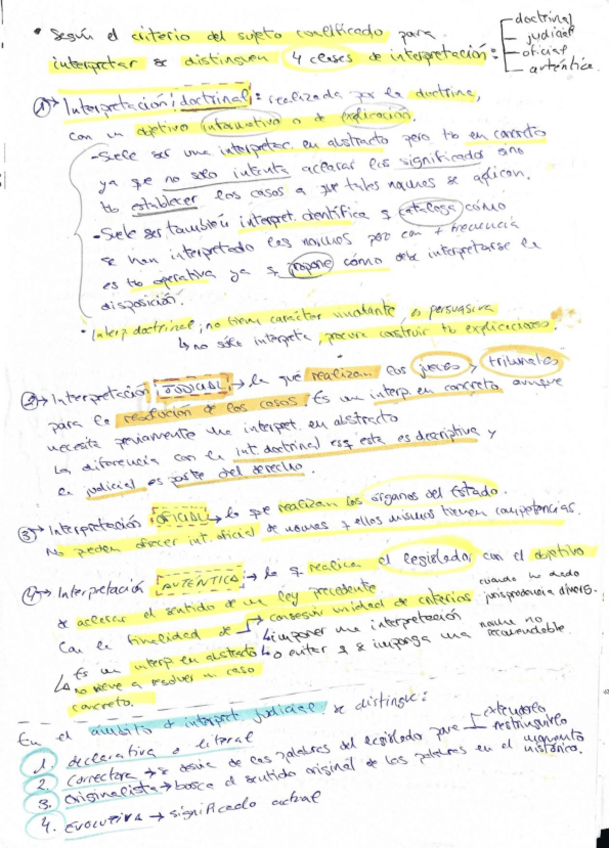 • Según el criterio del sujeto cualificado para
interpretar se distinguen 4 clases de interpretación:
doctrinal
judicial
oficial
auténtica
1) → Interpretación doctrinal: realizada por la doctrina,
con un objetivo informativo o de explicación.
- Suele ser una interpretac. en abstracto pero tb en concreto
ya qe no solo intenta aclarar los significados sino
tb establecer los casos a que tales normas se aplican.
- Suele ser también interpret. científica q cataloga cómo
se han interpretado las normas por con + frecuencia
es tb operativa ya q propone cómo debe interpretarse la
disposición.
• Interp doctrinal, no tiene carácter vinculante, es persuasiva
↳ no sólo interpreta, procura construir tb explicaciones.
2) → Interpretación JUDICIAL → la que realizan los jueces y tribunales
para la resolución de los casos. Es un interp. en concreto aunque
necesita previamente una interpret. en abstracto
La diferencia con la int. doctrinal es q esta es descriptiva y
la judicial es parte del derecho.
3) → Interpretación OFICIAL → la que realizan los órganos del Estado.
No pueden ofrecer int. oficial de normas q ellos mismos tienen competencias.
4) → Interpretación AUTÉNTICA → la q realiza el legislador con el objetivo
de aclarar el sentido de una ley precedente
Con la finalidad de → conseguir unidad de criterios cuando ha dado jurisprudencia divers.
↳ imponer una interpretación
↳ o evitar q se imponga una norma no recomendable.
↳ Es un interp en abstracto
no viene a resolver un caso
concreto.
En el ámbito de interpret. judicial se distingue:
1. declarativa o literal
2. Correctora → se desvía de las palabras del legislador para extenderlo
restringirlo
3. Originalista → busca el sentido original de las palabras en el momento histórico.
4. Evolutiva → significado actual